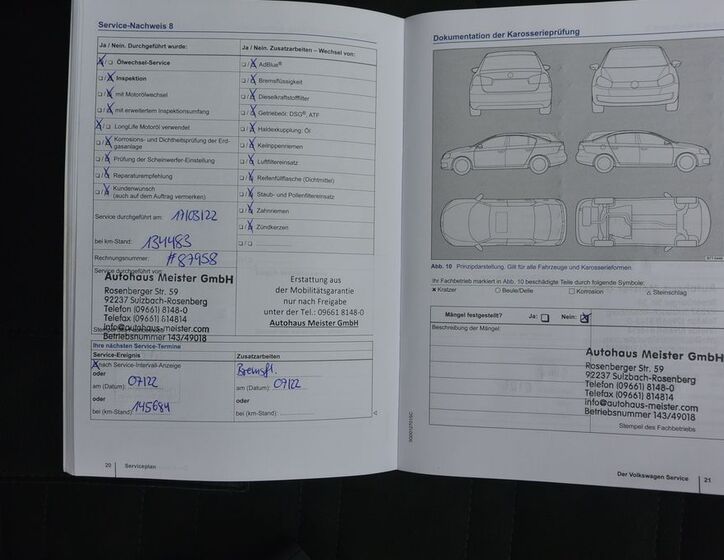 Service-Nachweis 8
Ja / Nein. Durchgeführt wurde:
Ölwechsel-Service
Inspektion
mit Motorölwechsel
mit erweitertem Inspektionsumfang
LongLife Motoröl verwendet
Korrosions- und Dichtheitsprüfung der Erd-
gasanlage
Prüfung der Scheinwerfer-Einstellung
Reparaturempfehlung
Kundenwunsch
(auch auf dem Auftrag vermerken)
Service durchgeführt am: 17/03/22
bei km-Stand: 134483
Rechnungsnummer: #87958
Service durchgeführt von:
Autohaus Meister GmbH
Rosenberger Str. 59
92237 Sulzbach-Rosenberg
Telefon (09661) 8148-0
Telefax (09661) 814814
info@autohaus-meister.com
Betriebsnummer 143/49018
Ja / Nein. Zusatzarbeiten – Wechsel von:
AdBlue®
Bremsflüssigkeit
Dieselkraftstofffilter
Getriebeöl: DSG®, ATF
Haldexkupplung: Öl
Keilrippenriemen
Luftfiltereinsatz
Reifenfüllflasche (Dichtmittel)
Staub- und Pollenfiltereinsatz
Zahnriemen
Zündkerzen
Erstattung aus
der Mobilitätsgarantie
nur nach Freigabe
unter der Tel.: 09661 8148-0
Autohaus Meister GmbH
Ihre nächsten Service-Termine
Service-Ereignis
nach Service-Intervall-Anzeige
oder
am (Datum): 07/22
oder
bei (km-Stand): 145684
Zusatzarbeiten
Bremsfl.
am (Datum): 07/22
oder
bei (km-Stand):
20 Serviceplan
Dokumentation der Karosserieprüfung
Abb. 10 Prinzipdarstellung. Gilt für alle Fahrzeuge und Karosserieformen.
Ihr Fachbetrieb markiert in Abb. 10 beschädigte Teile durch folgende Symbole:
× Kratzer ○ Beule/Delle □ Korrosion △ Steinschlag
Mängel festgestellt? Ja: Nein:
Beschreibung der Mängel:
Autohaus Meister GmbH
Rosenberger Str. 59
92237 Sulzbach-Rosenberg
Telefon (09661) 8148-0
Telefax (09661) 814814
info@autohaus-meister.com
Betriebsnummer 143/49018
Stempel des Fachbetriebs
Der Volkswagen Service 21